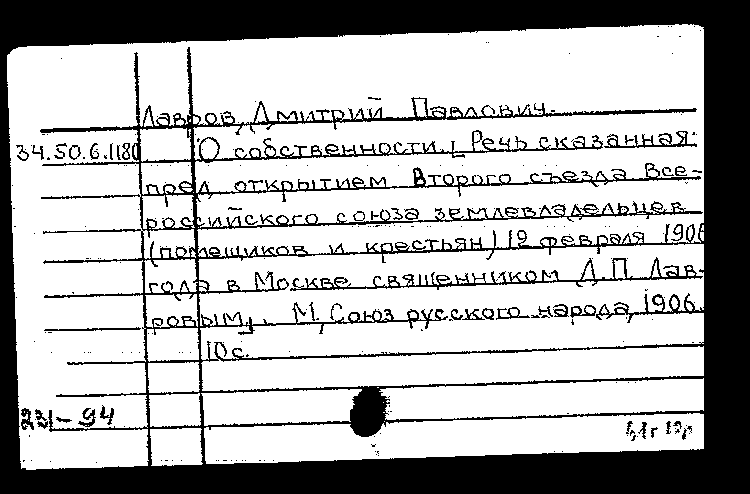 Лавров, Дмитрий Павлович.
34.50.6.1180 О собственности. [Речь сказанная
пред открытием Второго съезда Все-
российского союза землевладельцев
(помещиков и крестьян) 12 февраля 1906
года в Москве священником Д.П. Лав-
ровым]. М, Союз русского народа, 1906.
10 с.
231-94